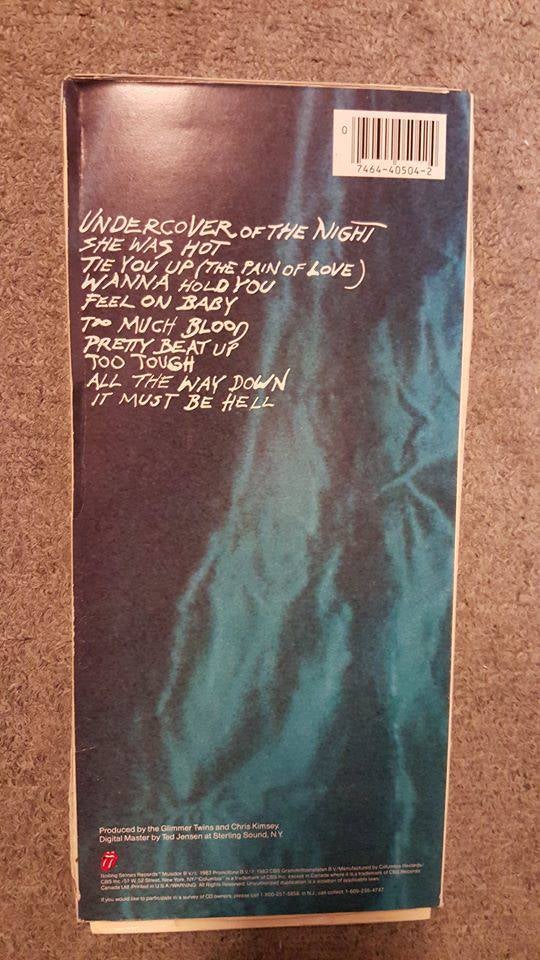 0
7464-40504-2
UNDERCOVER OF THE NIGHT
SHE WAS HOT
TIE YOU UP (THE PAIN OF LOVE)
WANNA HOLD YOU
FEEL ON BABY
TOO MUCH BLOOD
PRETTY BEAT UP
TOO TOUGH
ALL THE WAY DOWN
IT MUST BE HELL
Produced by the Glimmer Twins and Chris Kimsey.
Digital Master by Ted Jensen at Sterling Sound, N.Y.
Rolling Stones Records" Musidor B.V./℗ 1983 Promotone B.V./ 1983 CBS Grammofoonplaten B.V./Manufactured by Columbia Records/
CBS Inc./51 W. 52 Street, New York, NY/"Columbia" is a trademark of CBS Inc. except in Canada where it is a trademark of CBS Records
Canada Ltd./Printed in U.S.A./WARNING: All Rights Reserved. Unauthorized duplication is a violation of applicable laws.
If you would like to participate in a survey of CD owners, please call 1-800-257-5858. In N.J., call collect 1-609-235-4747